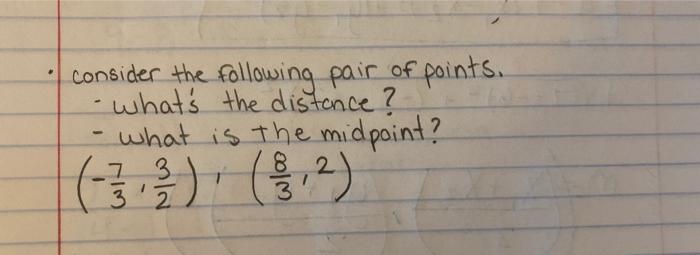 • consider the following pair of points.
- what's the distance?
- what is the midpoint?
(-7/3, 3/2), (8/3, 2)